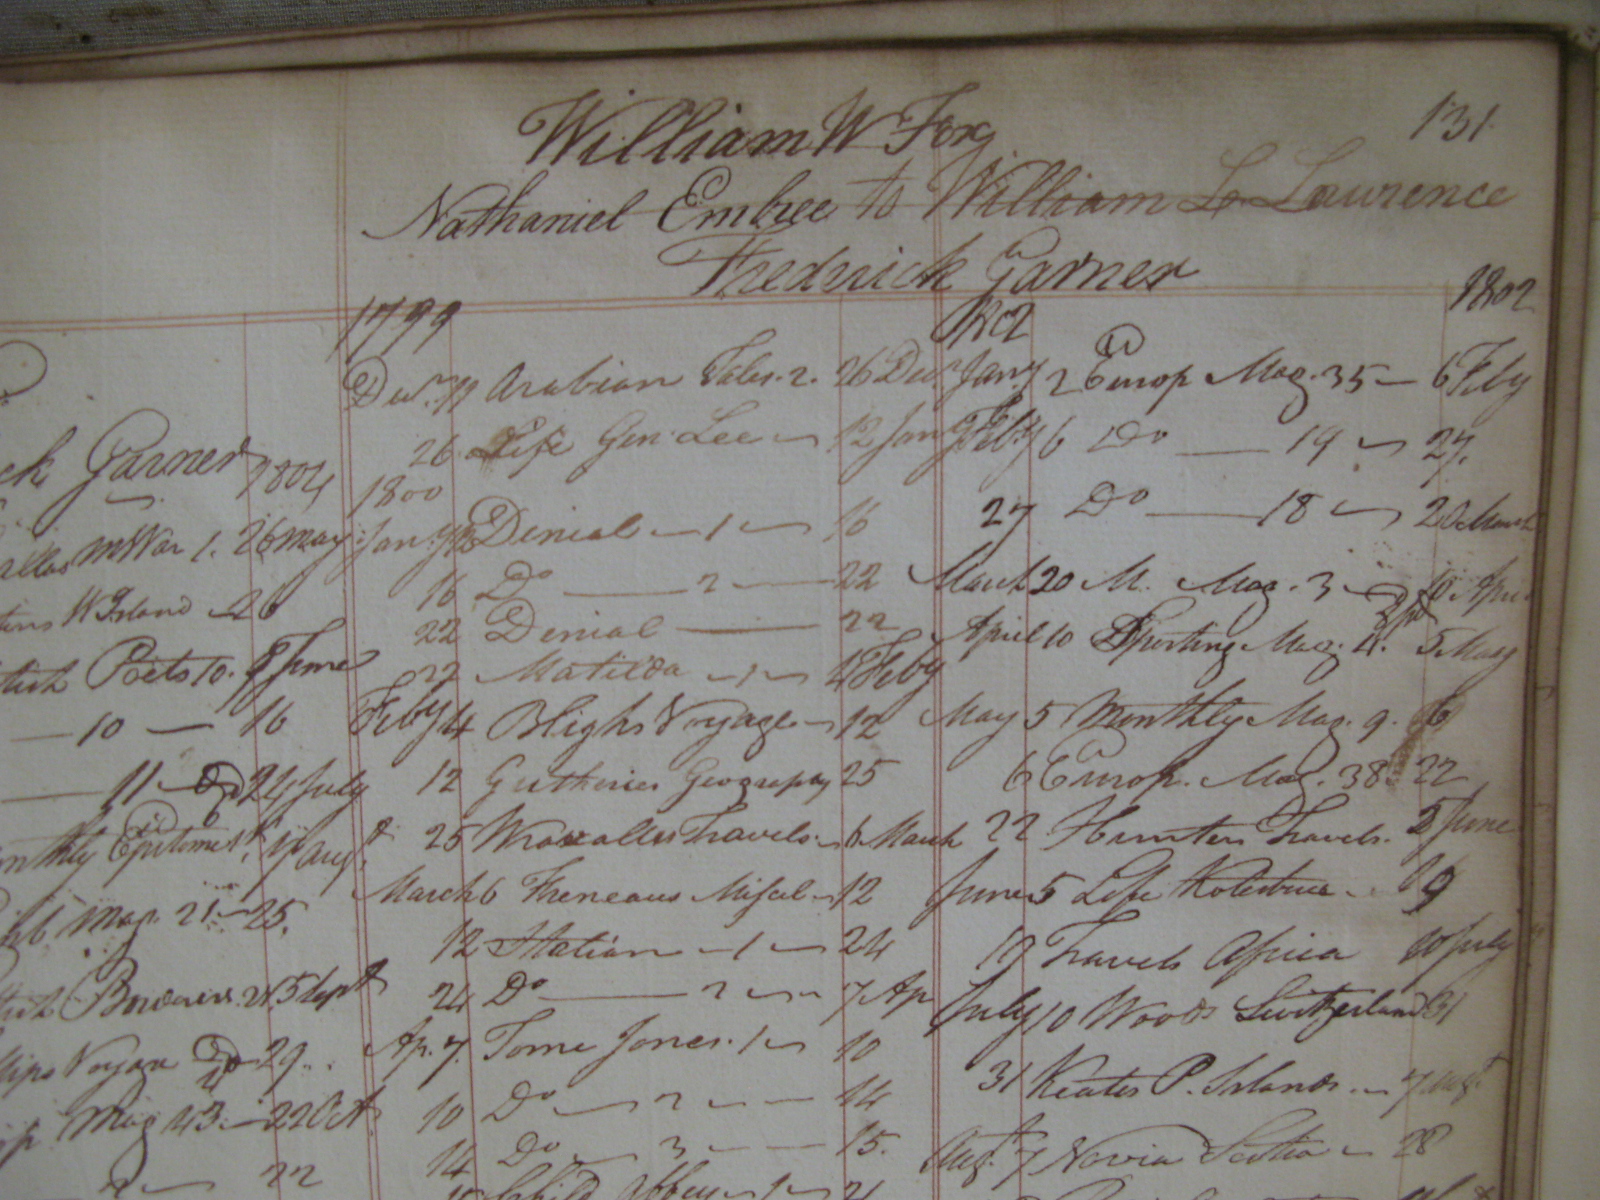 131
William W Fox
Nathaniel Embree to William L Lawrence
Fredrick Garner
ck Garner 1804
War 1. 26 May
W Island 26
Poets 10. 8 June
10 16
11 24 July
Epitome Aug
Mag. 21 25.
2 5 Sept
29.
Mag 43. 22 Oct
2 22
1799
Arabian Tales. 2. 26 Decr
26 Life Gen Lee 12 Jany
1800
Jany 12 Denial 1 16
16 Do 2 22
22 Denial 22
22 Matilda 1 4 Feby
Feby 4 Blighs Voyage 12
12 Guthries Geography 25
25 Wraxalls Travels 6 March
March 6 Freneaus Miscel 12
12 Italian 1 24
24 Do 2 7 Ap
Ap. 7. Tome Jones. 1 10
10 Do 2 14
14 Do 3 15.
15 Child Abbey 1 21
1802 1802
Jany 2 Europ Mag. 35 6 Feby
Feby 6 Do 19 27.
27 Do 18 20 March
March 20 M. Mag. 3 10 Apri
April 10 Sporting Mag. 4. 5 May
May 5 Monthly Mag. 9. 6
6 Europ. Mag. 38 22
22 Hunters Travels. 5 June
June 5 Life Kotzebue 19
19 Travels Africa 10 July
July 10 Woods Switzerland 31
31 Keates P. Islands 7 Augt
Augt. 7 Novia Scotia 28